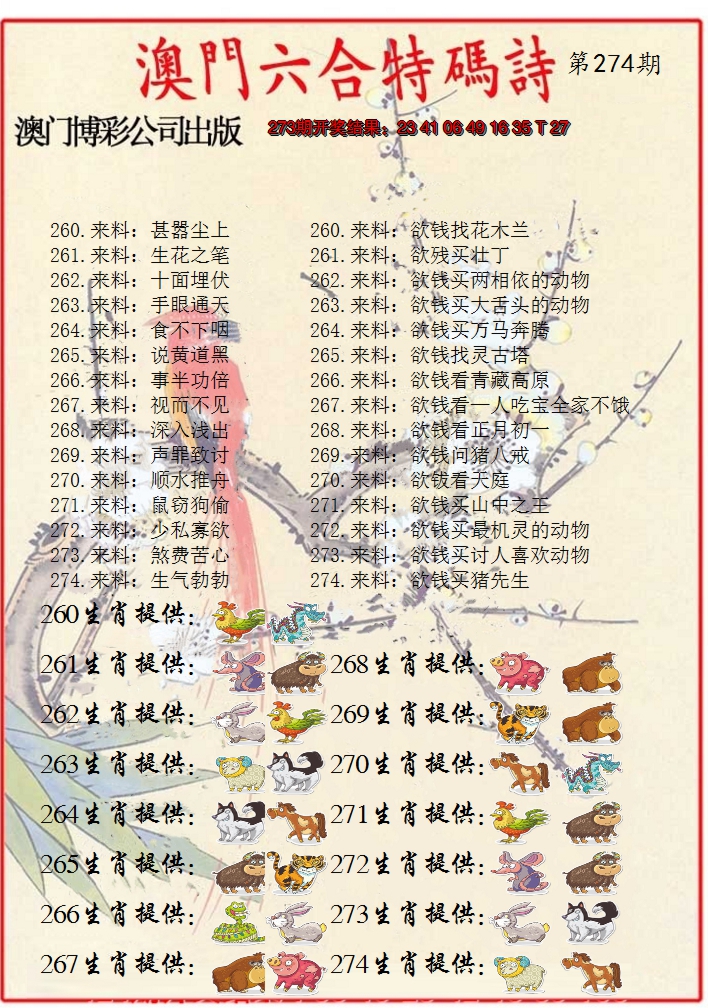 澳門六合特碼詩 第274期
澳门博彩公司出版 273期开奖结果：23 41 06 49 16 35 T 27
260.来料：甚嚣尘上 260.来料：欲钱找花木兰
261.来料：生花之笔 261.来料：欲残买壮丁
262.来料：十面埋伏 262.来料：欲钱买两相依的动物
263.来料：手眼通天 263.来料：欲钱买大舌头的动物
264.来料：食不下咽 264.来料：欲钱买万马奔腾
265.来料：说黄道黑 265.来料：欲钱找灵古塔
266.来料：事半功倍 266.来料：欲钱看青藏高原
267.来料：视而不见 267.来料：欲钱看一人吃宝全家不饿
268.来料：深入浅出 268.来料：欲钱看正月初一
269.来料：声罪致讨 269.来料：欲钱问猪八戒
270.来料：顺水推舟 270.来料：欲钹看天庭
271.来料：鼠窃狗偷 271.来料：欲钱买山中之王
272.来料：少私寡欲 272.来料：欲钱买最机灵的动物
273.来料：煞费苦心 273.来料：欲钱买讨人喜欢动物
274.来料：生气勃勃 274.来料：欲钱买猪先生
260生肖提供：
261生肖提供： 268生肖提供：
262生肖提供： 269生肖提供：
263生肖提供： 270生肖提供：
264生肖提供： 271生肖提供：
265生肖提供： 272生肖提供：
266生肖提供： 273生肖提供：
267生肖提供： 274生肖提供：